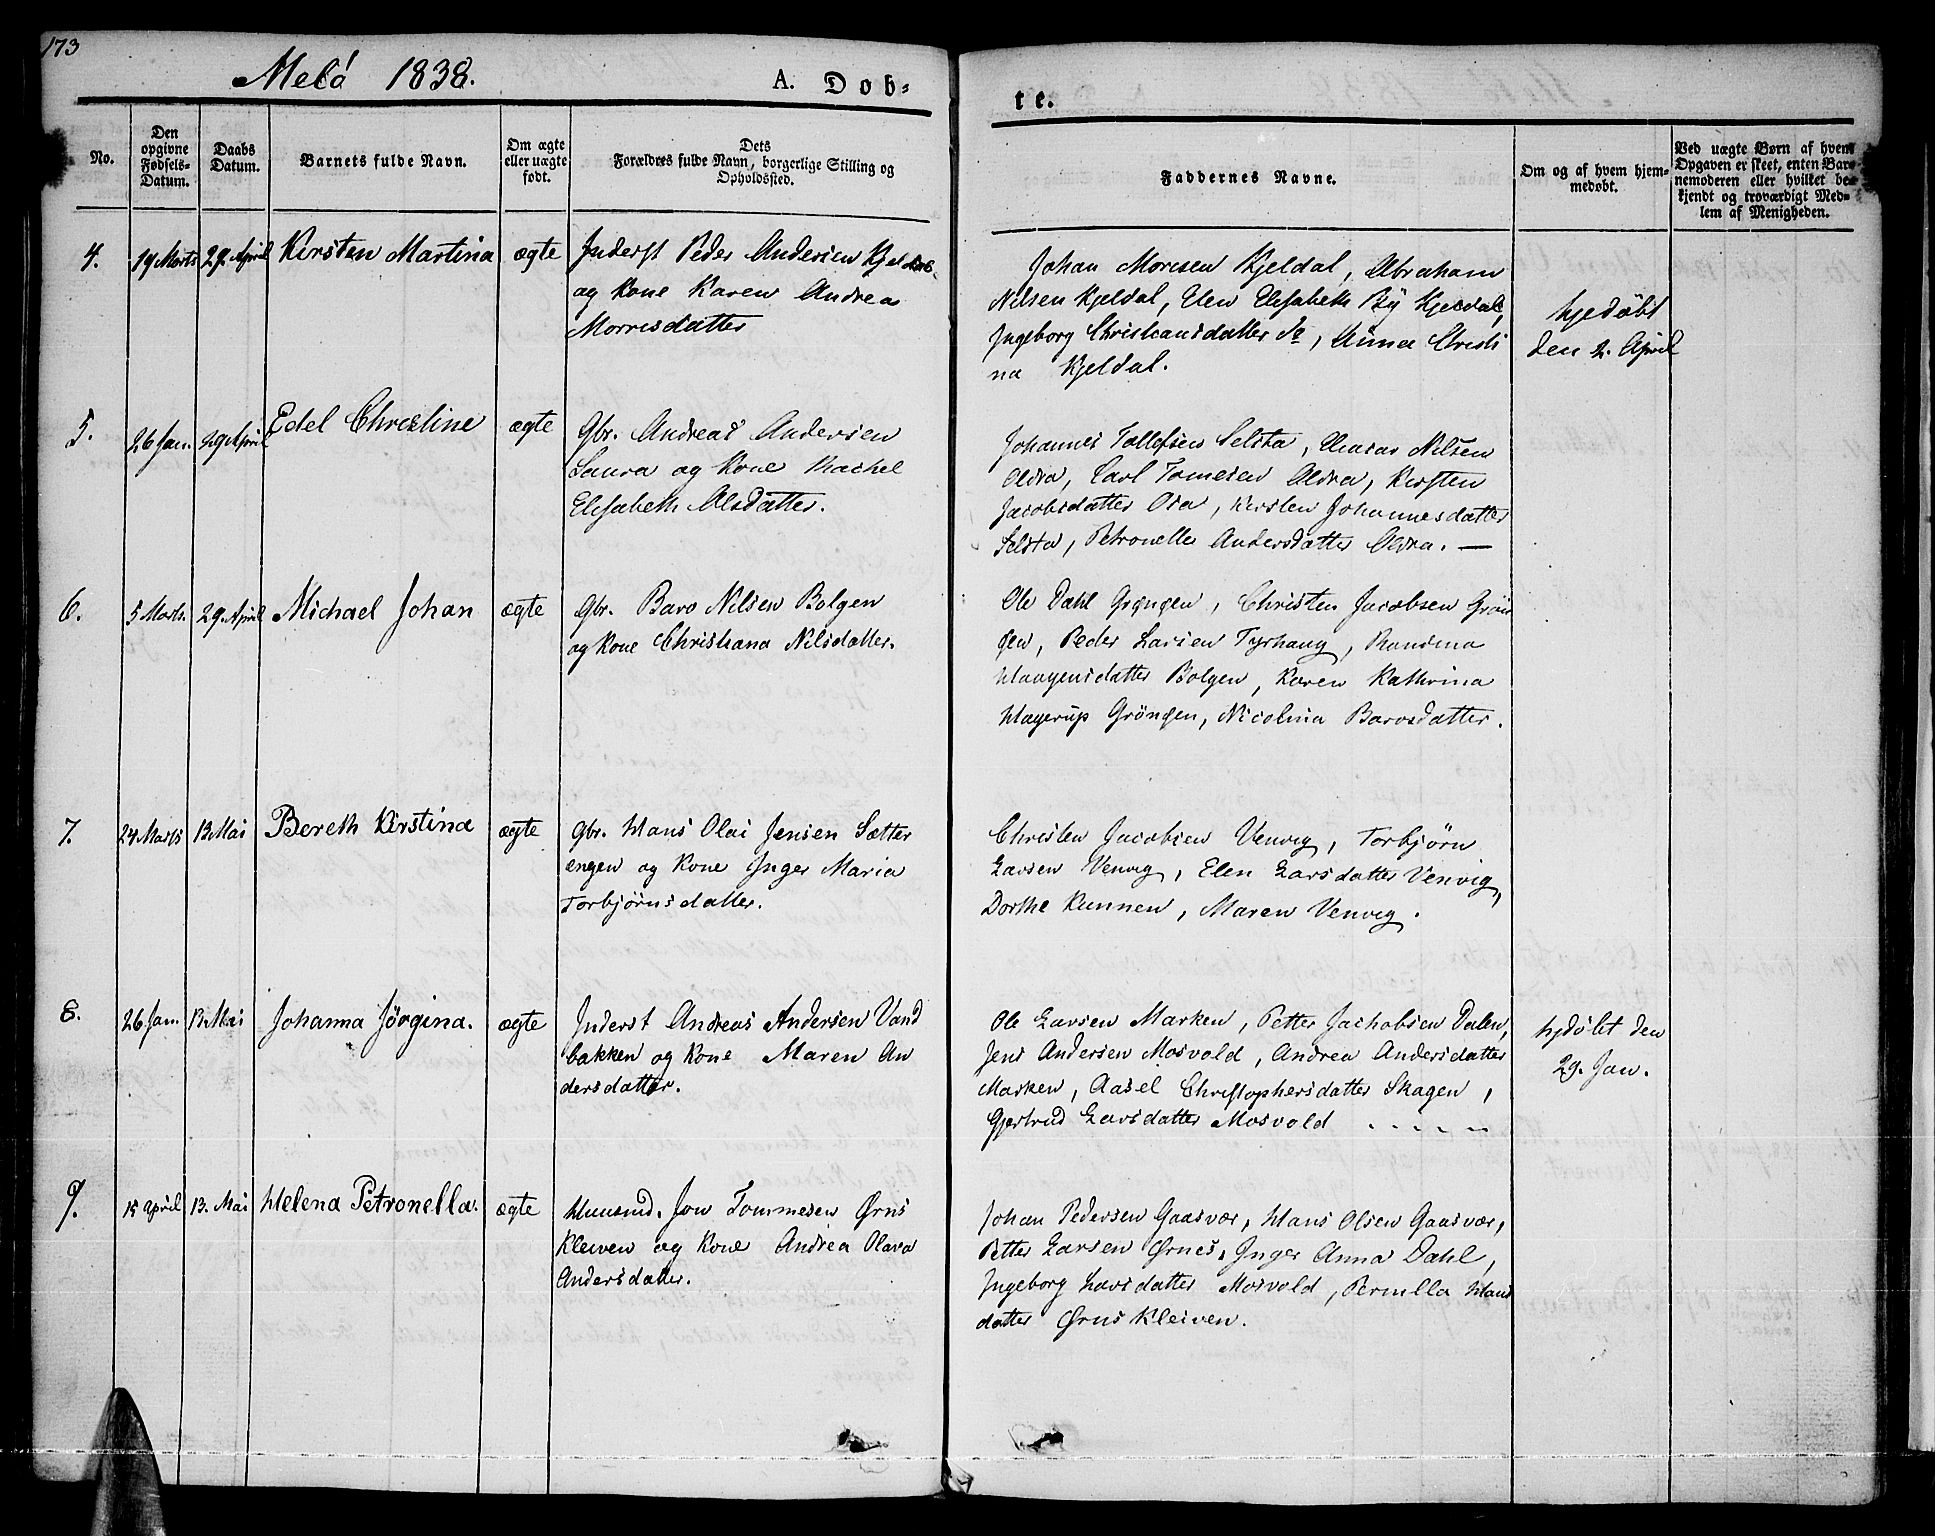 173
Melö 1838.
A. Döb-
te.
No.
Den
opgivne
Fødsels-
Datum.
Daabs
Datum.
Barnets fulde Navn.
Om ægte
eller uægte
født.
Dets
Forældres fulde Navn, borgerlige Stilling og
Opholdssted.
Faddernes Navne.
Om og af hvem hjem-
medøbt.
Ved uægte Børn af hvem
Opgaven er skeet, enten Bar-
nemoderen eller hvilket be-
kjendt og troværdigt Med-
lem af Menigheden.
4.
19 Marts
29. April
Kirsten Martina
ægte
Inderst Peder Andersen Kjeldal
og Kone Karen Andrea
Morrisdatter
Johan Moresen Kjeldal, Abraham
Nilsen Kjeldal, Elen Elisabeth By Kjeldal,
Ingeborg Christiansdatter do, Anna Christi
na Kjeldal.
hjedøbt
den 2. April
5.
26 Jan.
29 April
Edel Christine
ægte
Gbr. Andreas Andersen
Saura og Kone Rachel
Elisabeth Olsdatter.
Johannes Tollefsen Selsta, Eleasar Nilsen
Oldra, Carl Tomesen Aldra, Kirsten
Jacobsdatter Osa, Kirsten Johannesdatter
Selsta, Petronelle Andersdatter Aldra. —
6.
5 Marts.
29. April
Michael Johan
ægte
Gbr. Baro Nilsen Bolgen
og Kone Christiana Nilsdatter.
Ole Dahl Grøngen, Christen Jacobsen Grön
gen, Peder Larsen Tyrhaug, Ransina
Haagensdatter Bolgen, Karen Kathrina
Hagerup Gröngen, Nicolina Barosdatter.
7.
24 Marts
13 Mai
Bereth Kirstina
ægte
Gbr. Hans Olai Jensen Sætter
engen og Kone Inger Maria
Torbjørnsdatter.
Christen Jacobsen Venvig, Torbjørn
Larsen Venvig, Elen Larsdatter Venvig,
Dorthe Kunnen, Maren Venvig.
8.
26 Jan.
13. Mai
Johanna Jörgina.
ægte
Inderst Andreas Andersen Vand
bakken og Kone Maren An
dersdatter.
Ole Larsen Marken, Petter Jachobsen Dalen,
Jens Andersen Mosvold, Andrea Andersdatter
Marken, Aasel Christophersdatter Skagen,
Gjertrud Larsdatter Mosvold
hjdøbt den
29. Jan.
9.
15 April
13. Mai
Helena Petronella.
ægte
Huusmd. Jon Tommesen Ørns
kleiven og Kone Andrea Olava
Andersdatter.
Johan Pedersen Gaasvær, Hans Olsen Gaasvær,
Petter Larsen Ørnes, Inger Anna Dahl,
Ingeborg Larsdatter Mosvold, Pernilla Hans
datter Ørnskleiven.